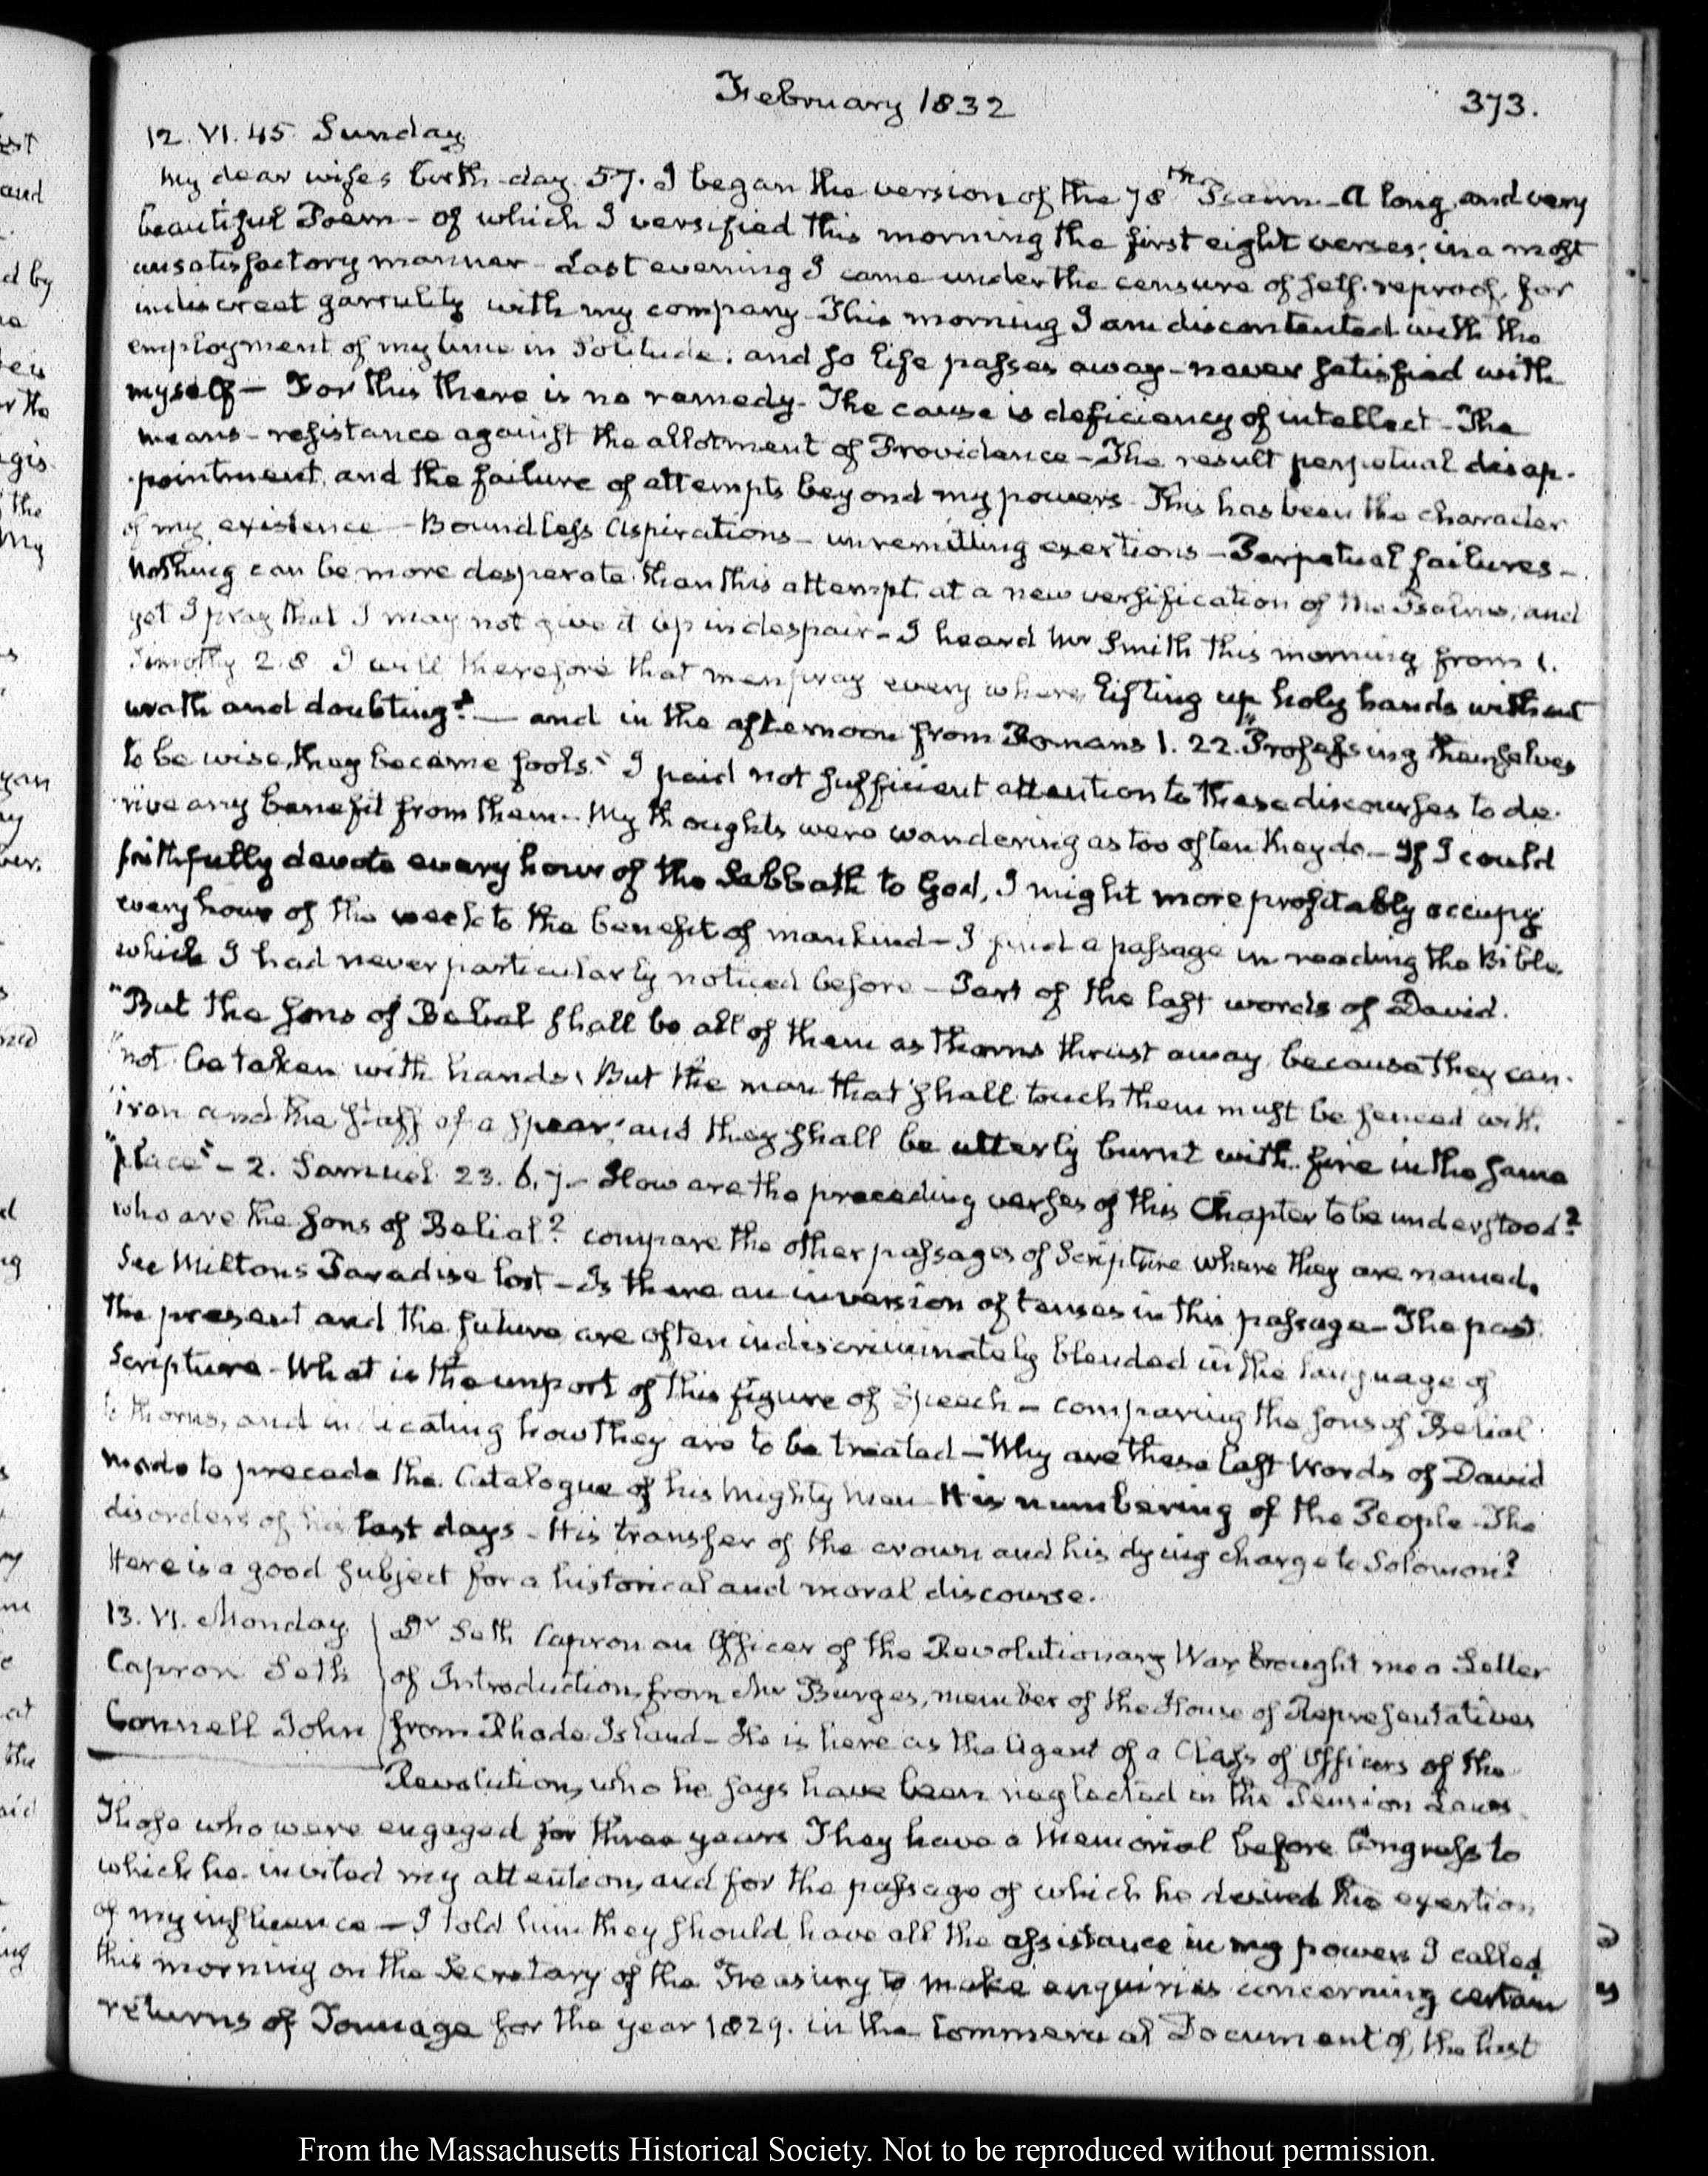 February 1832
373.
12. VI. 45. Sunday
My dear wife's birth-day. 57. I began the version of the 78th Psalm—A long, and very
beautiful Poem—of which I versified this morning the first eight verses; in a most
unsatisfactory manner—Last evening I came under the censure of self-reproof, for
indiscreet garrulity with my company—This morning I am discontented with the
employment of my time in Solitude; and so life passes away—never satisfied with
myself—For this there is no remedy. The cause is deficiency of intellect—The
means—resistance against the allotment of Providence—The result perpetual disap-
pointment, and the failure of attempts beyond my powers. This has been the character
of my existence—Boundless Aspirations—unremitting exertions—Perpetual failures—
Nothing can be more desperate than this attempt at a new versification of the Psalms, and
yet I pray that I may not give it up in despair—I heard Mr Smith this morning from 1.
Timothy 2.8 I will therefore that men pray every where, lifting up holy hands without
wrath and doubting."—and in the afternoon from Romans 1. 22. "Professing themselves
to be wise, they became fools." I paid not sufficient attention to these discourses to de-
rive any benefit from them—My thoughts were wandering as too often they do—If I could
faithfully devote every hour of the Sabbath to God, I might more profitably occupy
every hour of the week to the benefit of mankind—I find a passage in reading the Bible
which I had never particularly noticed before—Part of the last words of David.
"But the sons of Belial shall be all of them as thorns thrust away, because they can-
"not be taken with hands: But the man that shall touch them must be fenced with
"iron and the staff of a spear; and they shall be utterly burnt with fire in the same
"place"—2. Samuel 23. 6, 7.—How are the preceding verses of this Chapter to be understood?
who are the sons of Belial? compare the other passages of Scripture where they are named.
See Miltons Paradise lost—Is there an inversion of tenses in this passage—The past
the present and the future are often indiscriminately blended in the language of
Scripture—What is the import of this figure of Speech—comparing the sons of Belial
to thorns, and indicating how they are to be treated—Why are these last Words of David
made to precede the Catalogue of his Mighty Men—His numbering of the People—The
disorders of his last days—His transfer of the crown and his dying charge to Solomon?
Here is a good subject for a historical and moral discourse.
13. VI. Monday
Capron Seth
Connell John
Dr Seth Capron an Officer of the Revolutionary War, brought me a Letter
of Introduction, from Mr Burges, member of the House of Representatives
from Rhode-Island—He is here as the Agent of a Class of Officers of the
Revolution, who he says have been neglected in the Pension Laws
Those who were engaged for three years They have a Memorial before Congress to
which he invited my attention, and for the passage of which he desired the exertion
of my influence—I told him they should have all the assistance in my power. I called
this morning on the Secretary of the Treasury to make enquiries concerning certain
returns of Tonnage for the year 1829. in the Commercial Document of, the last
From the Massachusetts Historical Society. Not to be reproduced without permission.